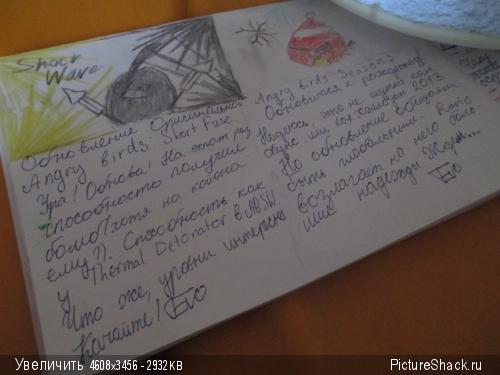 Shock
Wave
Обновление Оригинальной
Angry Birds. Short Fuse
Ура! Обнова! На этот раз
способность получил
бомб (хотя на кой она
ему?). Способность как
у Thermal Detonator в ABSW.
Что же, уровни интересны
Качайте!
Angry Birds Seasons
Обновится к рождеству
Надеюсь, это не шутка как
или 2013
Но обновление обещали
быть глобальным. Rovio
возлагает на него боль-
шие надежды. Ждём...
Увеличить 4608x3456 - 2932KB
PictureShack.ru